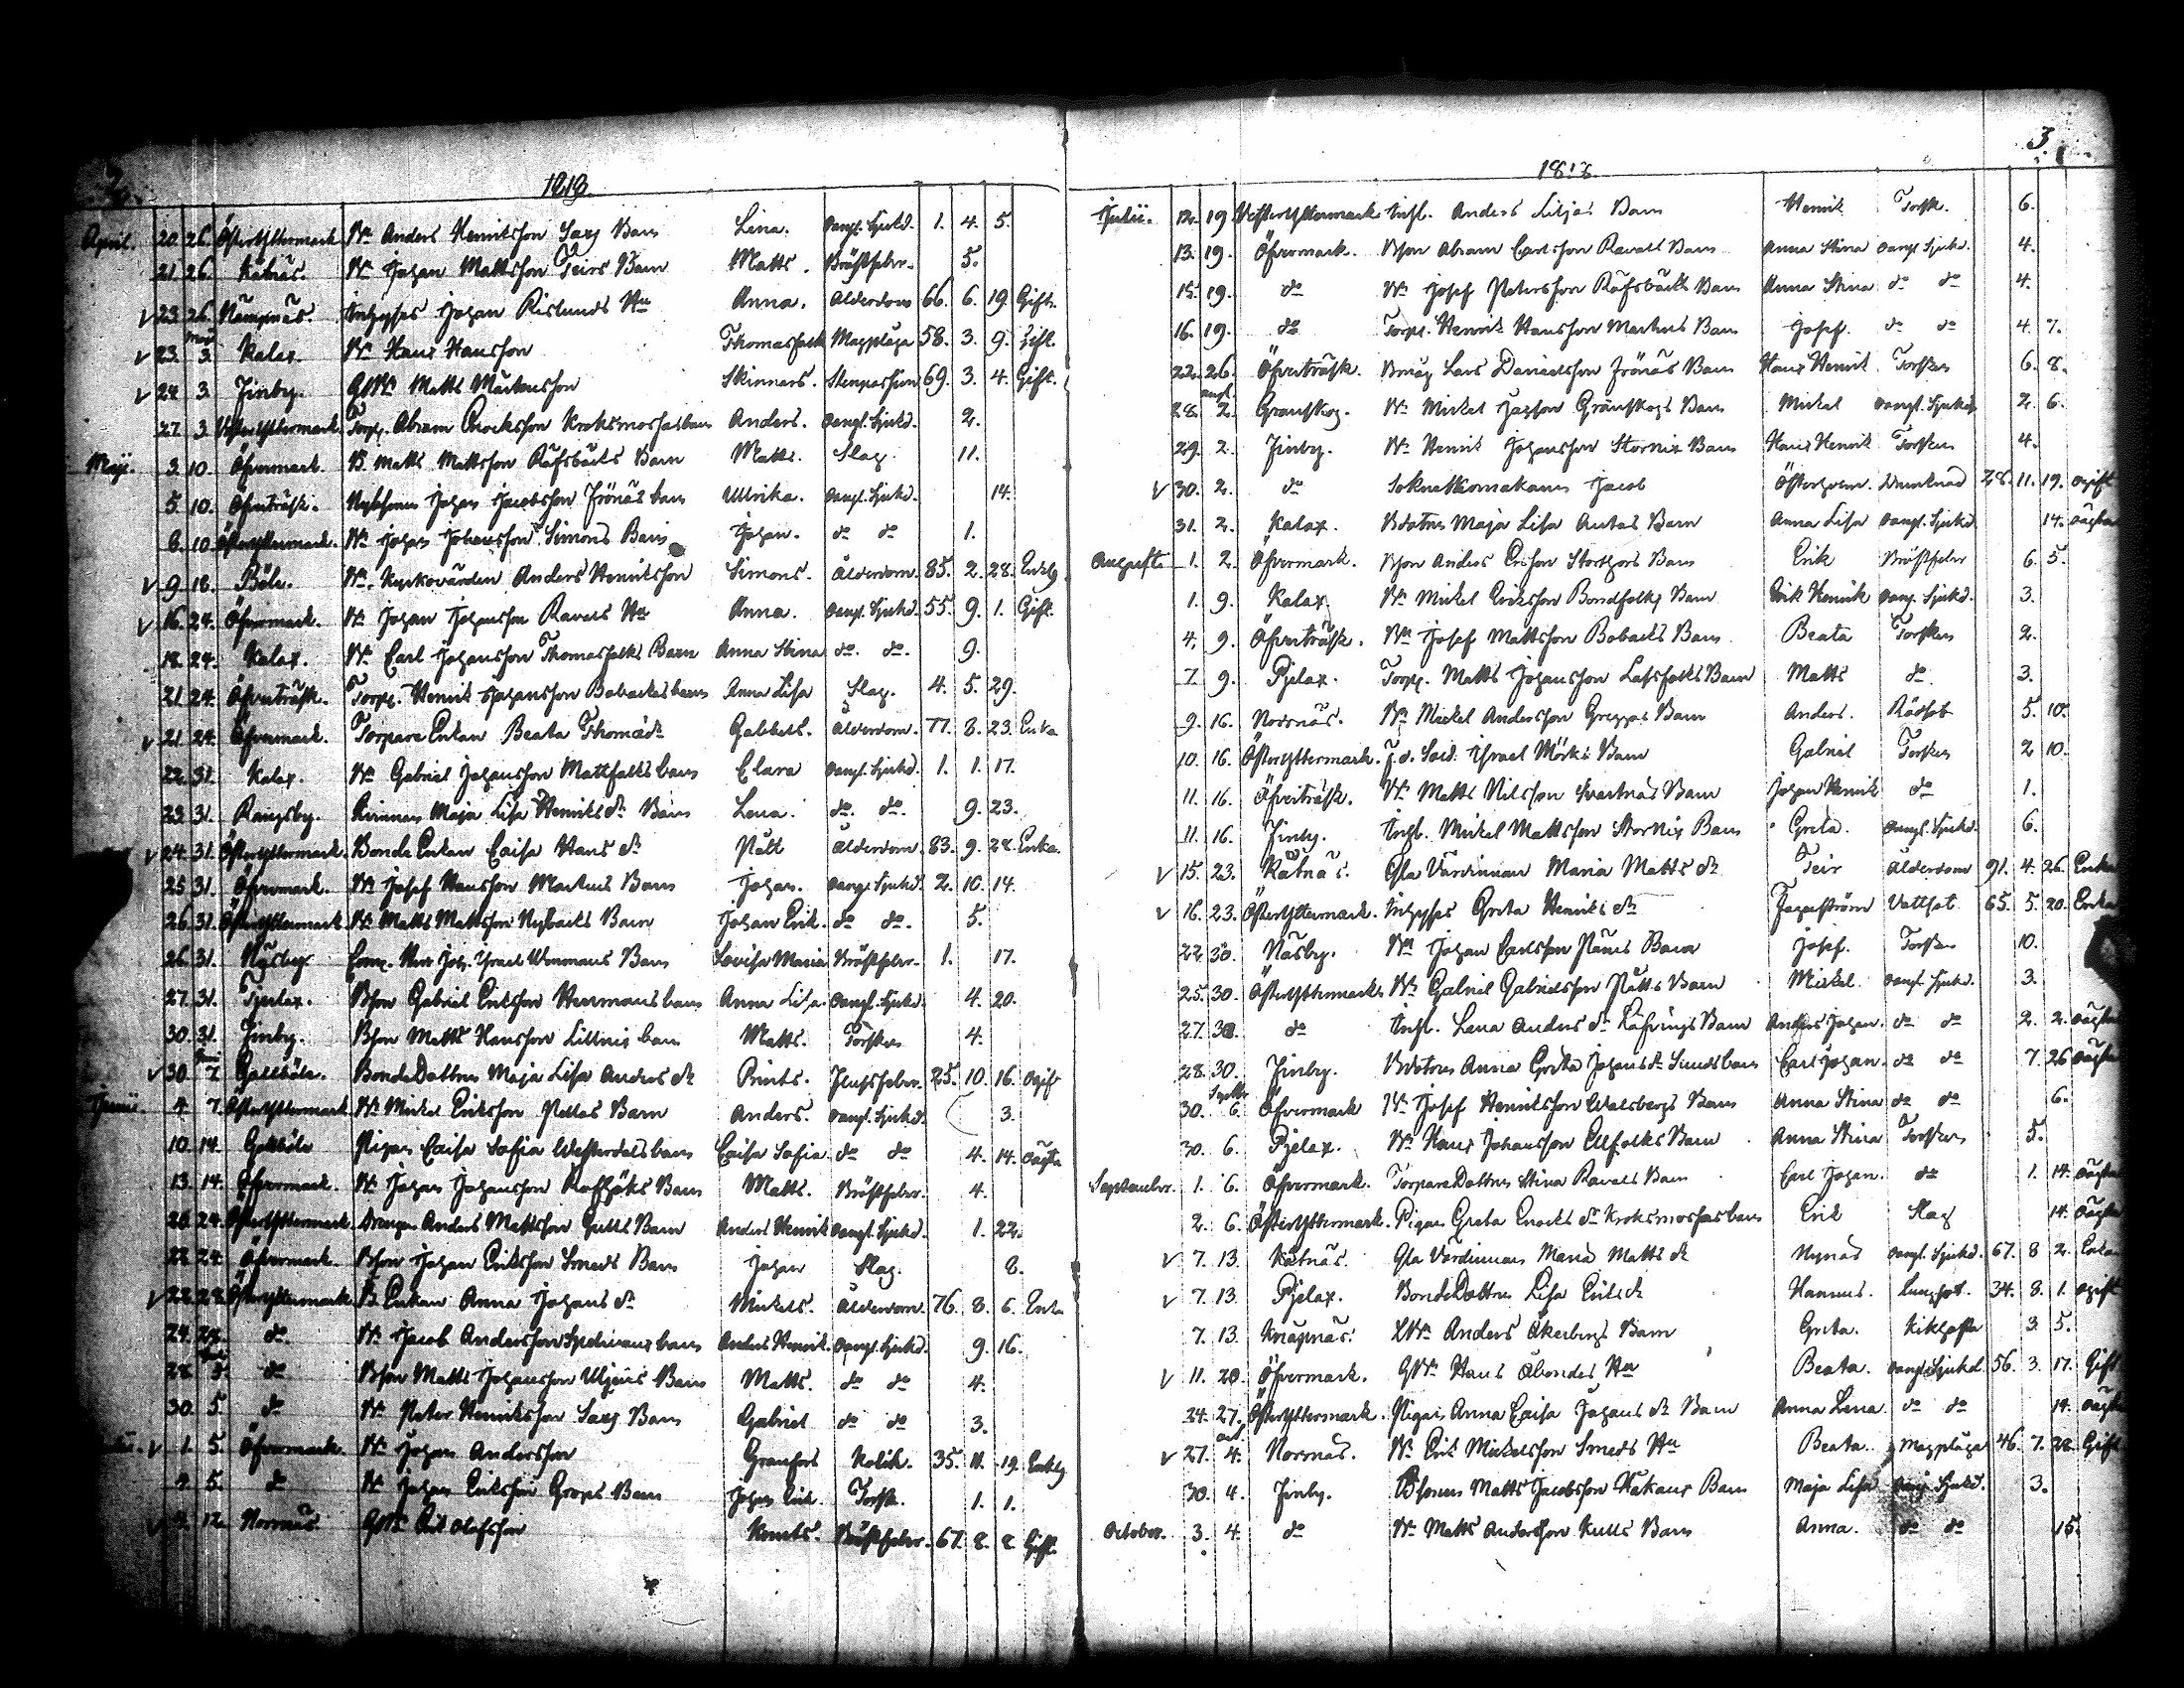 2.
1818.
April. 20. 26. Östervttermark Bn Anders Henriksson Saxs Barn Lina. oangl. Sjukd. 1. 4. 5.
21. 26. Kåtnäs. Bn Johan Mattsson Teirs Barn Matts. Bröstfeber. 5.
v 23. 26. Nämpnäs. Inhyses Johan Rislunds Hu Anna. Ålderdom 66. 6. 19. Gift.
v 23. maj 3. Kalax. Bn Hans Hansson Thomasfolk Magplåga 58. 3. 9. Gift.
v 24. 3. Finby. GBn Matts Mårtensson Skinnars. Stenpassion 69. 3. 4. Gift.
27. 3. Vesterÿttermark. Torp. Abram Enocksson Kroksmoshas barn Anders. oangl. Sjukd. 2.
Maji. 3. 10. Öfvermark. B. Matts Mattsson Räfsbäcks Barn Matts. Slag. 11.
5. 10. Öfverträsk. Johan Jacobsson Frönäs barn Ullrika. oangl. Sjukd. 14.
6. 10. Österÿttermark. Bn Johan Johansson Simons Barn Johan. do do 1.
v 9. 18. Böle. Kyrkovärden Anders Henriksson Simons. Ålderdom. 85. 2. 28. Enkl.
v 16. 24. Öfvermark. Bn Johan Johansson Ravals Hu Anna. oangl. Sjukd. 55. 9. 1. Gift.
18. 24. Kalax. Bn Carl Johansson Thomasfolks Barn Anna Stina do. do. 9.
21. 24. Öfverträsk. Torp. Henrik Johansson Bobacks barn Anna Lisa Slag. 4. 5. 29.
v 21. 24. Öfvermark. Torpare Enkan Beata Thomædr Gabbels. Ålderdom. 77. 8. 23. Enka
22. 31. Kalax. Bn Gabriel Johansson Mattfolks barn Clara oangl. Sjukd. 1. 1. 17.
23. 31. Rangsby. Maja Lisa Henriksdr Barn Lena. do. do. 9. 23.
v 24. 31. Österÿttermark. Bonde Enkan Caisa Hans dr Pått Ålderdom. 83. 9. 28. Enka.
25. 31. Öfvermark. Bn Josef Hansson Markus Barn Johan. oangl. Sjukd. 2. 10. 14.
26. 31. Österÿttermark Bn Matts Mattsson Nybacks Barn Johan Erik. do do. 5.
26. 31. Näsby. Joh. Israel Wenmans Barn Lovisa Maria Bröstfeber. 1. 17.
27. 31. Tjerlax. Bson Gabriel Eriksson Hermans barn Anna Lisa. oangl. Sjukd. 4. 20.
30. 31. Finby. Bson Matts Hansson Lillnix barn Matts. Torsken 4.
v 30. Juni 7. Gottböle. Bonde Dottren Maja Lisa Anders dr Prints. 25. 10. 16. ogift
Junii. 4. 7. Österÿttermark Bn Mickel Eriksson Pellas Barn Anders. oangl. Sjukd. 3.
10. 14. Gottböle Pigan Caisa Sofia Westerdals barn Caisa Sofia. do do 4. 14. oägta
13. 14. Öfvermark. Bn Johan Johansson Barn Matts. Bröstfeber. 4.
20. 24. Österÿttermark. Drengen Anders Mattsson Gulls Barn Anders Henrik oangl. Sjukd. 1. 22.
22. 24. Öfvermark. Bson Johan Eriksson Smeds Barn Johan Slag. 8.
v 22. 28. Österÿttermark B. Enkan Anna Johans dr Mickels. Ålderdom. 76. 8. 6. Enka
24. 28. do Bn Jacob Andersson Spelmans barn Anders Henrik. oangl. Sjukd. 9. 16.
28. 5. do Bson Matts Johansson Uljens Barn Matts. do do 4.
30. 5. do Bn Peter Henriksson Saxs Barn Gabriel do do 3.
v 1. 5. Öfvermark. Bn Johan Andersson Granfors Kolik. 35. 11. 19. Enkl
4. 5. do Bn Johan Eriksson Grops Barn Johan Erik. Torsk. 1. 1.
v 4. 12. Norrnäs GBn Erik Olofsson Knuts. Bröstfeber. 67. 8. 8 Gift.
3.
1818.
Julii. 12. 19. Vesterÿttermark Inh. Anders Liljas Barn Henrik Torsk. 6.
13. 19. Öfvermark. Bson Abram Carlsson Ravals Barn Anna Stina oangl. Sjukd. 4.
15. 19. do Bn Josef Petersson Räfsbäcks Barn Anna Stina do do 4.
16. 19. do Torp. Henrik Hansson Markus Barn Josef. do do 4. 7.
22. 26. Öfverträsk. Lars Danielsson Frönäs Barn Hans Henrik. Torsken 6. 8.
28. augt. 2. Gränskog. Bn Mickel Jansson Gränskogs Barn Mickel oangl. Sjukd. 2. 6.
29. 2. Finby. Bn Henrik Johansson Stornix Barn Hans Henrik Torsken 4.
v 30. 2. do Jacob Österholm. Drunknad 28. 11. 19. ogift
31. 2. Kalax. Bdotren Maja Lisa Antas Barn Anna Lisa oangl. Sjukd. 14. oägta
Augusti. 1. 2. Öfvermark. Bson Anders Ersson Storthors Barn Erik Bröstfeber 6. 5.
1. 9. Kalax Bn Mickel Eriksson Bondfolks Barn Erik Henrik oang. Sjukd. 3.
4. 9. Öfverträsk. Bn Josef Mattsson Bobacks Barn Beata Torsken 2.
7. 9. Pjelax. Torp. Matts Johansson Lassfolks Barn Matts do. 3.
9. 16. Norrnäs. Bn Mickel Andersson Greggas Barn Anders. Rödsot 5. 10.
10. 16. Österÿttermark. f.d. Sold. Israel Mörks Barn Gabriel Torsken 2 10.
11. 16. Öfverträsk. Bn Matts Nilsson Svartnäs Barn Johan Henrik do 1.
11. 16. Finby. Inh. Mickel Mattsson Stornix Barn Greta. oangl. Sjukd. 6.
v 15. 23. Kåtnäs. Gla Värdinnan Maria Matts dr Teir Ålderdom 91. 4. 26. Enka
v 16. 23. Österÿttermark. Inhyses Greta Henriks dr Fagerström Vattsot 65. 5. 20. Enka
22. 30. Näsby. Bn Johan Carlsson Barn Josef. Torsken 10.
25. 30. Österÿttermark Bn Gabriel Gabrielsson Pätts Barn Mickel. oangl. Sjukd. 3.
27. 30. do Inh. Lena Anders dr Räfvings Barn Anders Johan. do do 2. 2. oägta
28. 30. Finby. Bdotren Anna Greta Johans dr Sunds barn Carl Johan. do do 7. 26 oägta
30. Septbr 6. Öfvermark Bn Josef Henriksson Walsbergs Barn Anna Stina do do 6.
30. 6. Pjelax. Bn Hans Johansson Ellfolks Barn Anna Stina Torsken 5.
September. 1. 6. Öfvermark. Torpare Dottren Stina Ravals Barn Carl Johan. do 1. 14. oägta
2. 6. Österÿttermark. Pigan Greta Enocks dr Kroksmoshas barn Erik Slag 14. oägta
v 7. 13. Kåtnäs. Gla Värdinnan Maria Matts dr Nynäs oangl. Sjukd. 67. 8 2. Enka
v 7. 13. Pjelax. Bonde Dottren Lisa Eriks dr Hannus. Lungsot. 34. 8. 1. ogift
7. 13. Knåpnäs. LBn Anders Åkerbergs Barn Greta. Kikhosta 3. 5.
v 11. 20. Öfvermark. GBn Hans Åbondes Hu Beata. oangl. Sjukd 56. 3. 17. Gift
24. 27. Österÿttermark. Pigan Anna Caisa Johans dr Barn Anna Lena. do do 14. oägta
v 27. oct. 4. Norrnäs. Bn Erik Mickelsson Smeds Hu Beata. Magplåga 46. 7. 28. Gift
30. 4. Finby. Matts Jacobsson Håkans Barn Maja Lisa oangl. Sjukd. 3.
October. 3. 4. do Bn Matts Andersson Kulls Barn Anna. do do 15.